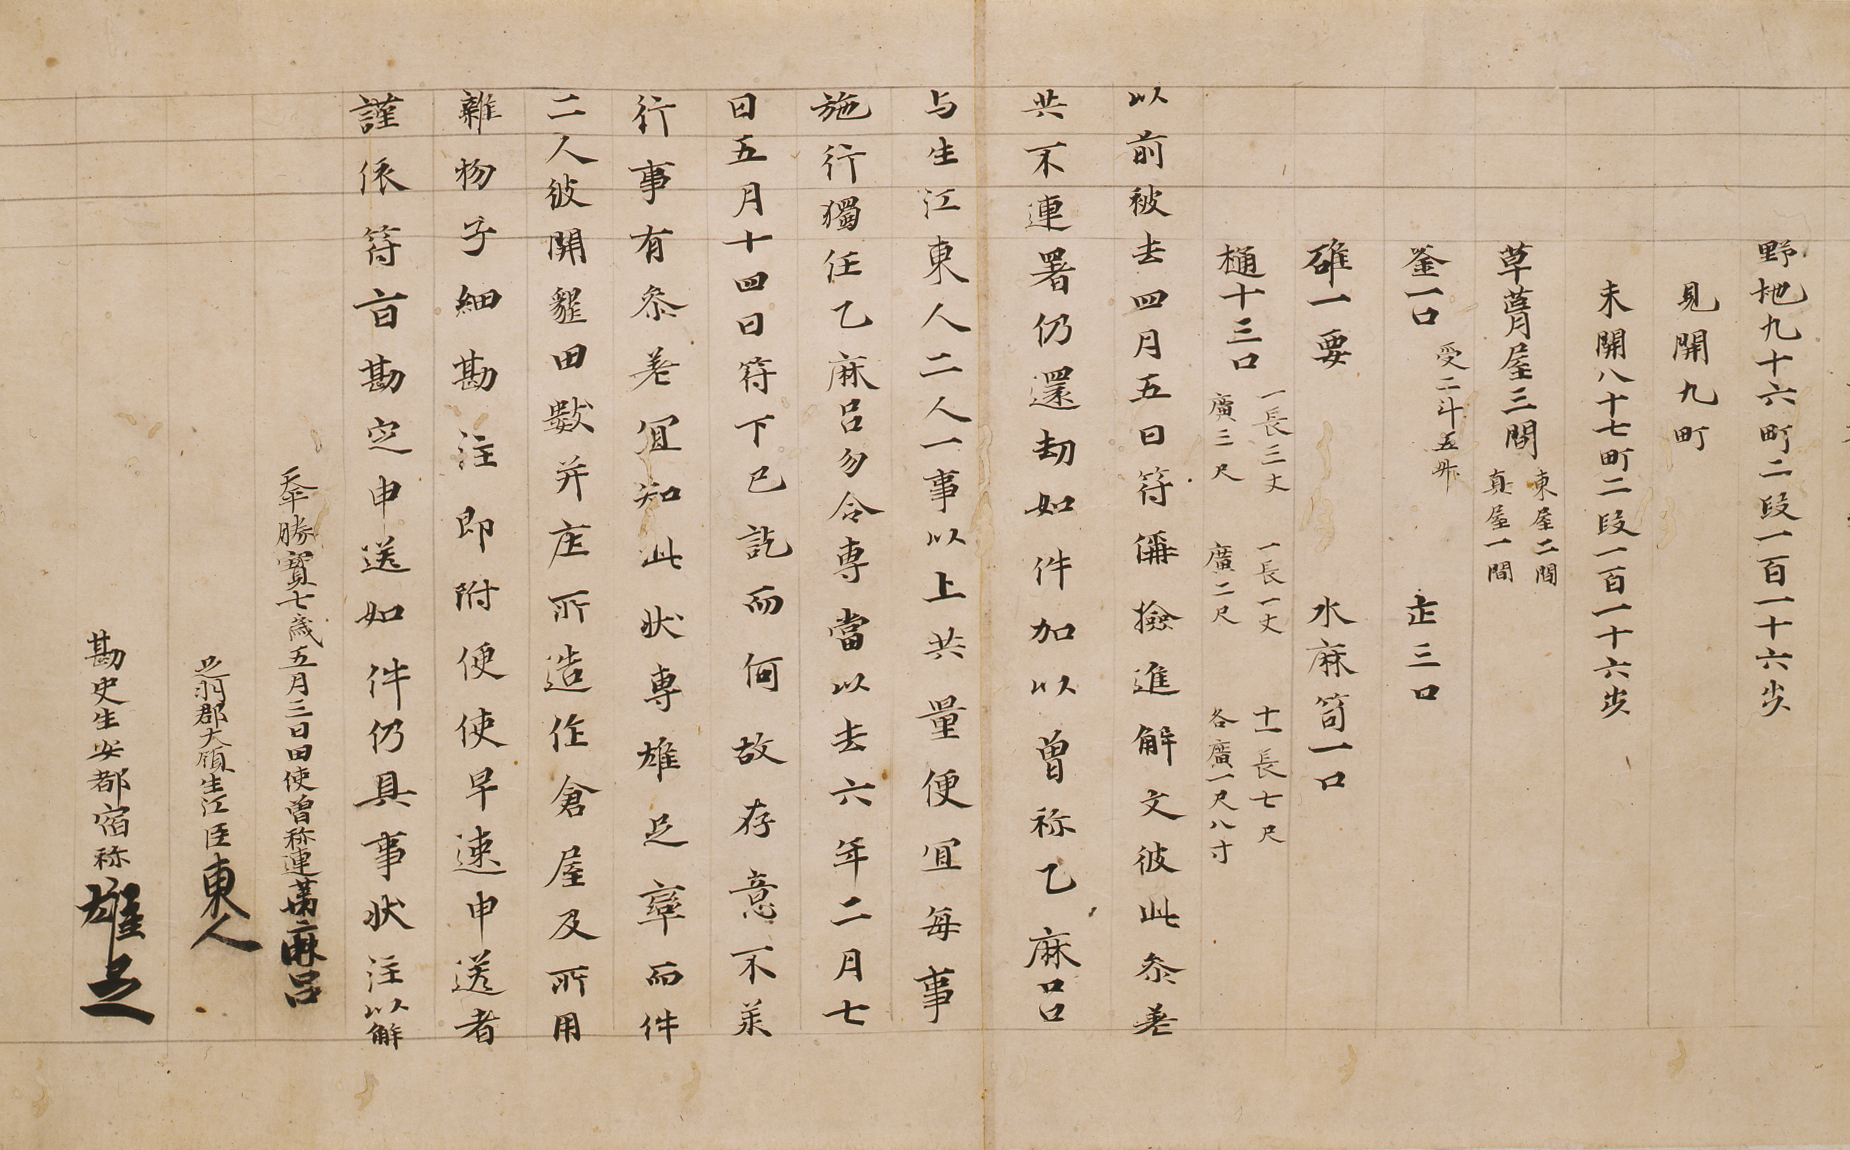 野地九十六町二段一百一十六歩
見開九町
未開八十七町二段一百一十六歩
草葺屋三間 東屋二間
真屋一間
釜一口 受二斗五升 疋三口
碓一要 水麻笥一口
樋十三口 一長三丈 廣三尺 一長一丈 廣二尺 十一長七尺 各廣一尺八寸
以前被去四月五日符偁撿進解文彼此叅差
共不連署仍還却如件加以曽祢乙麻呂
与生江東人二人一事以上共量便宜毎事
施行獨任乙麻呂勿令専當以去六年二月七
日五月十四日符下已訖而何故存意不萊
行事有叅差冝知此状専雄足率而件
二人彼開墾田數并庄所造作倉屋及所用
雜物子細勘注即附便使早速申送者
謹依符旨勘定申送如件仍具事状注以解
天平勝寳七歳五月三日田使曽祢連萬麻呂
足羽郡大領生江臣東人
勘史生安都宿祢雄足